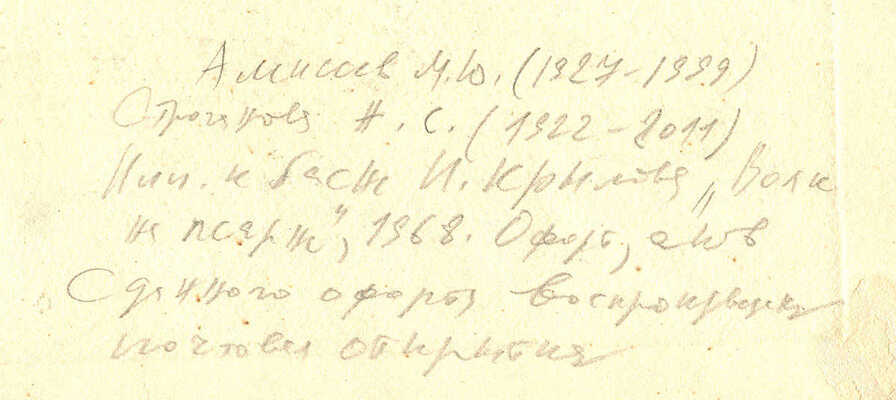 Алисов М.Ю. (1927-1999)
Строганова Н.С. (1922-2011)
Илл. к басне И. Крылова „Волк
на псарне", 1968. Офорт, акв
С данного офорта воспроизведена
почтовая открытка